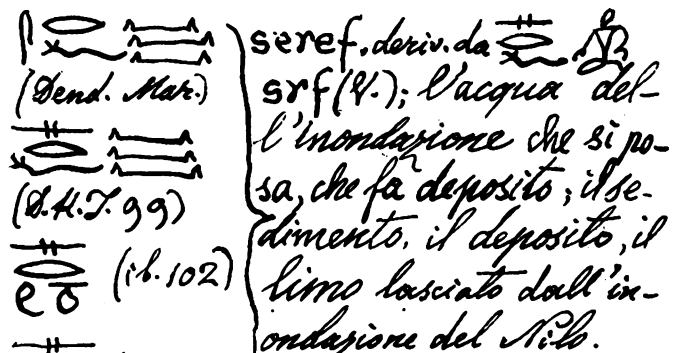 (Dend. Mar.)
(D.H.T. 99)
(ib. 102)
seref, deriv. da
srf (V.); l'acqua del-
l'inondazione che si po-
sa, che fa deposito; il se-
dimento, il deposito, il
limo lasciato dall'in-
ondazione del Nilo.